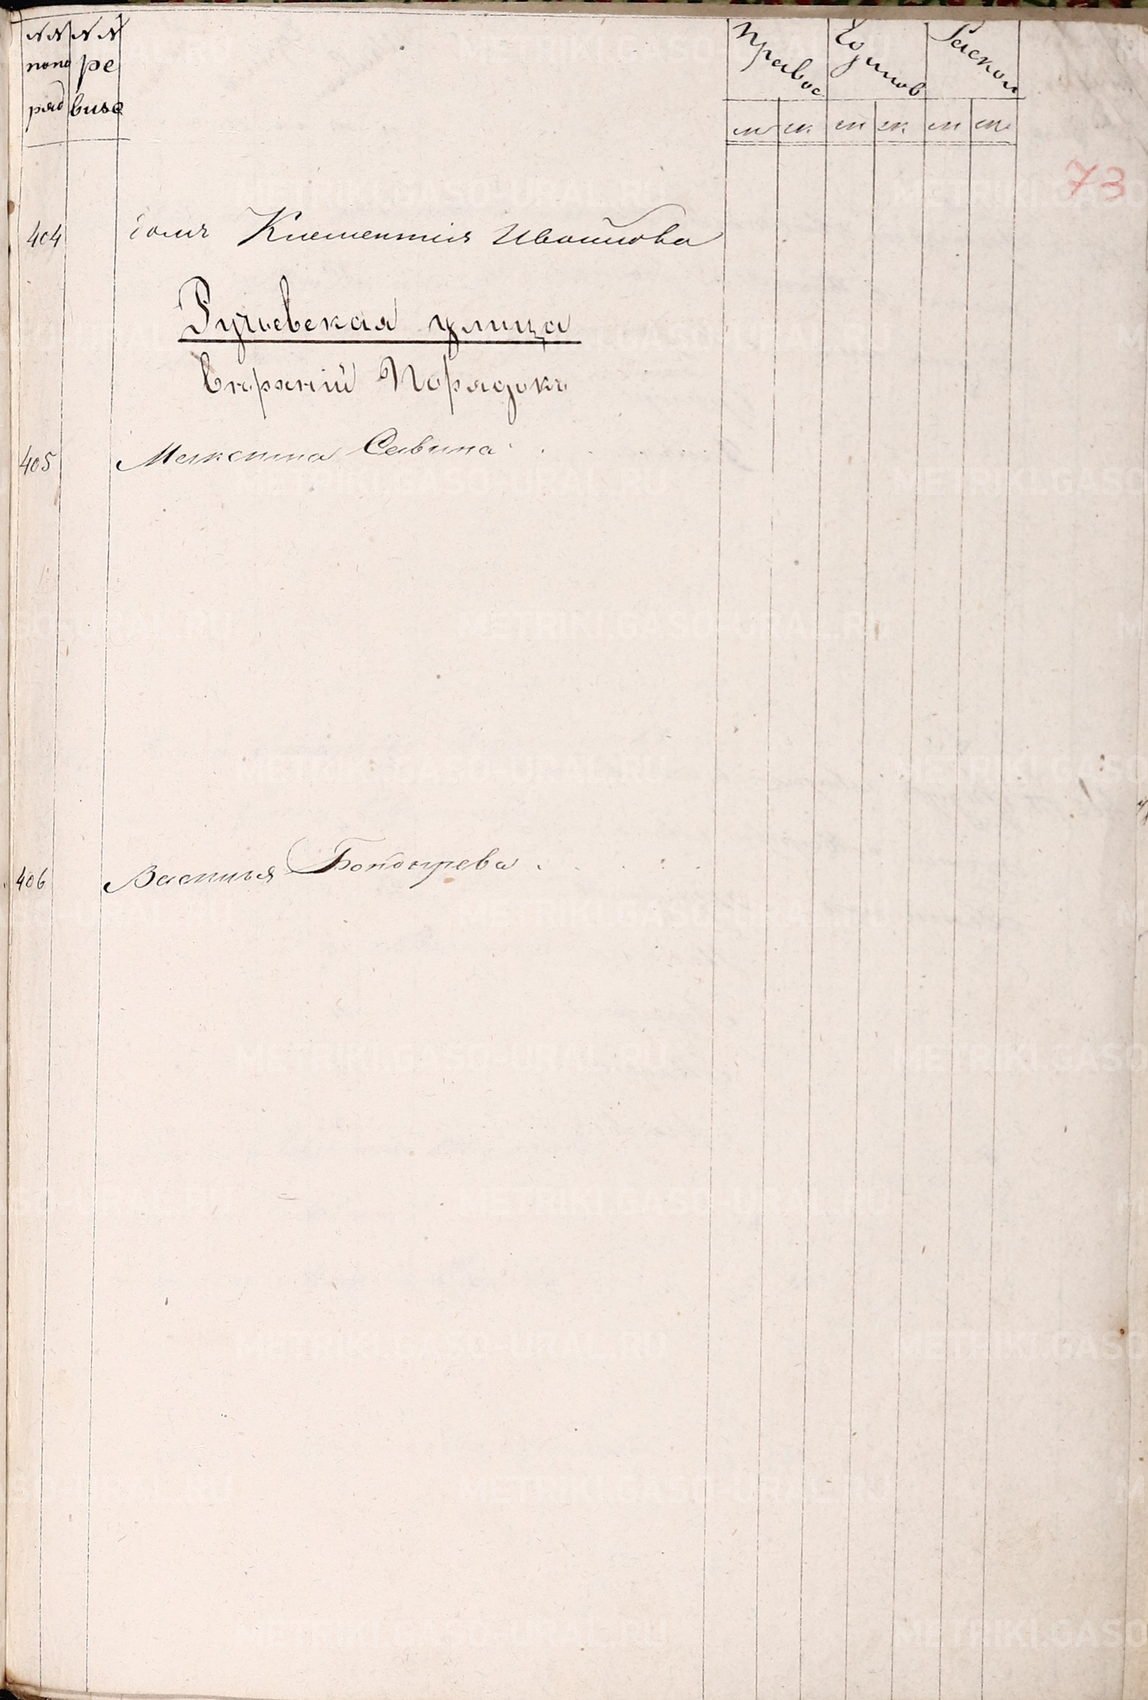 №№ №№ Правос Единов Раскол
попо ре
ряд визс м ж м ж м ж
73
404 домъ Клементія Ивойлова
Ручьевская улица
Порядокъ
405 Максима Савина
406 Василья
METRIKI.GASO-URAL.RU